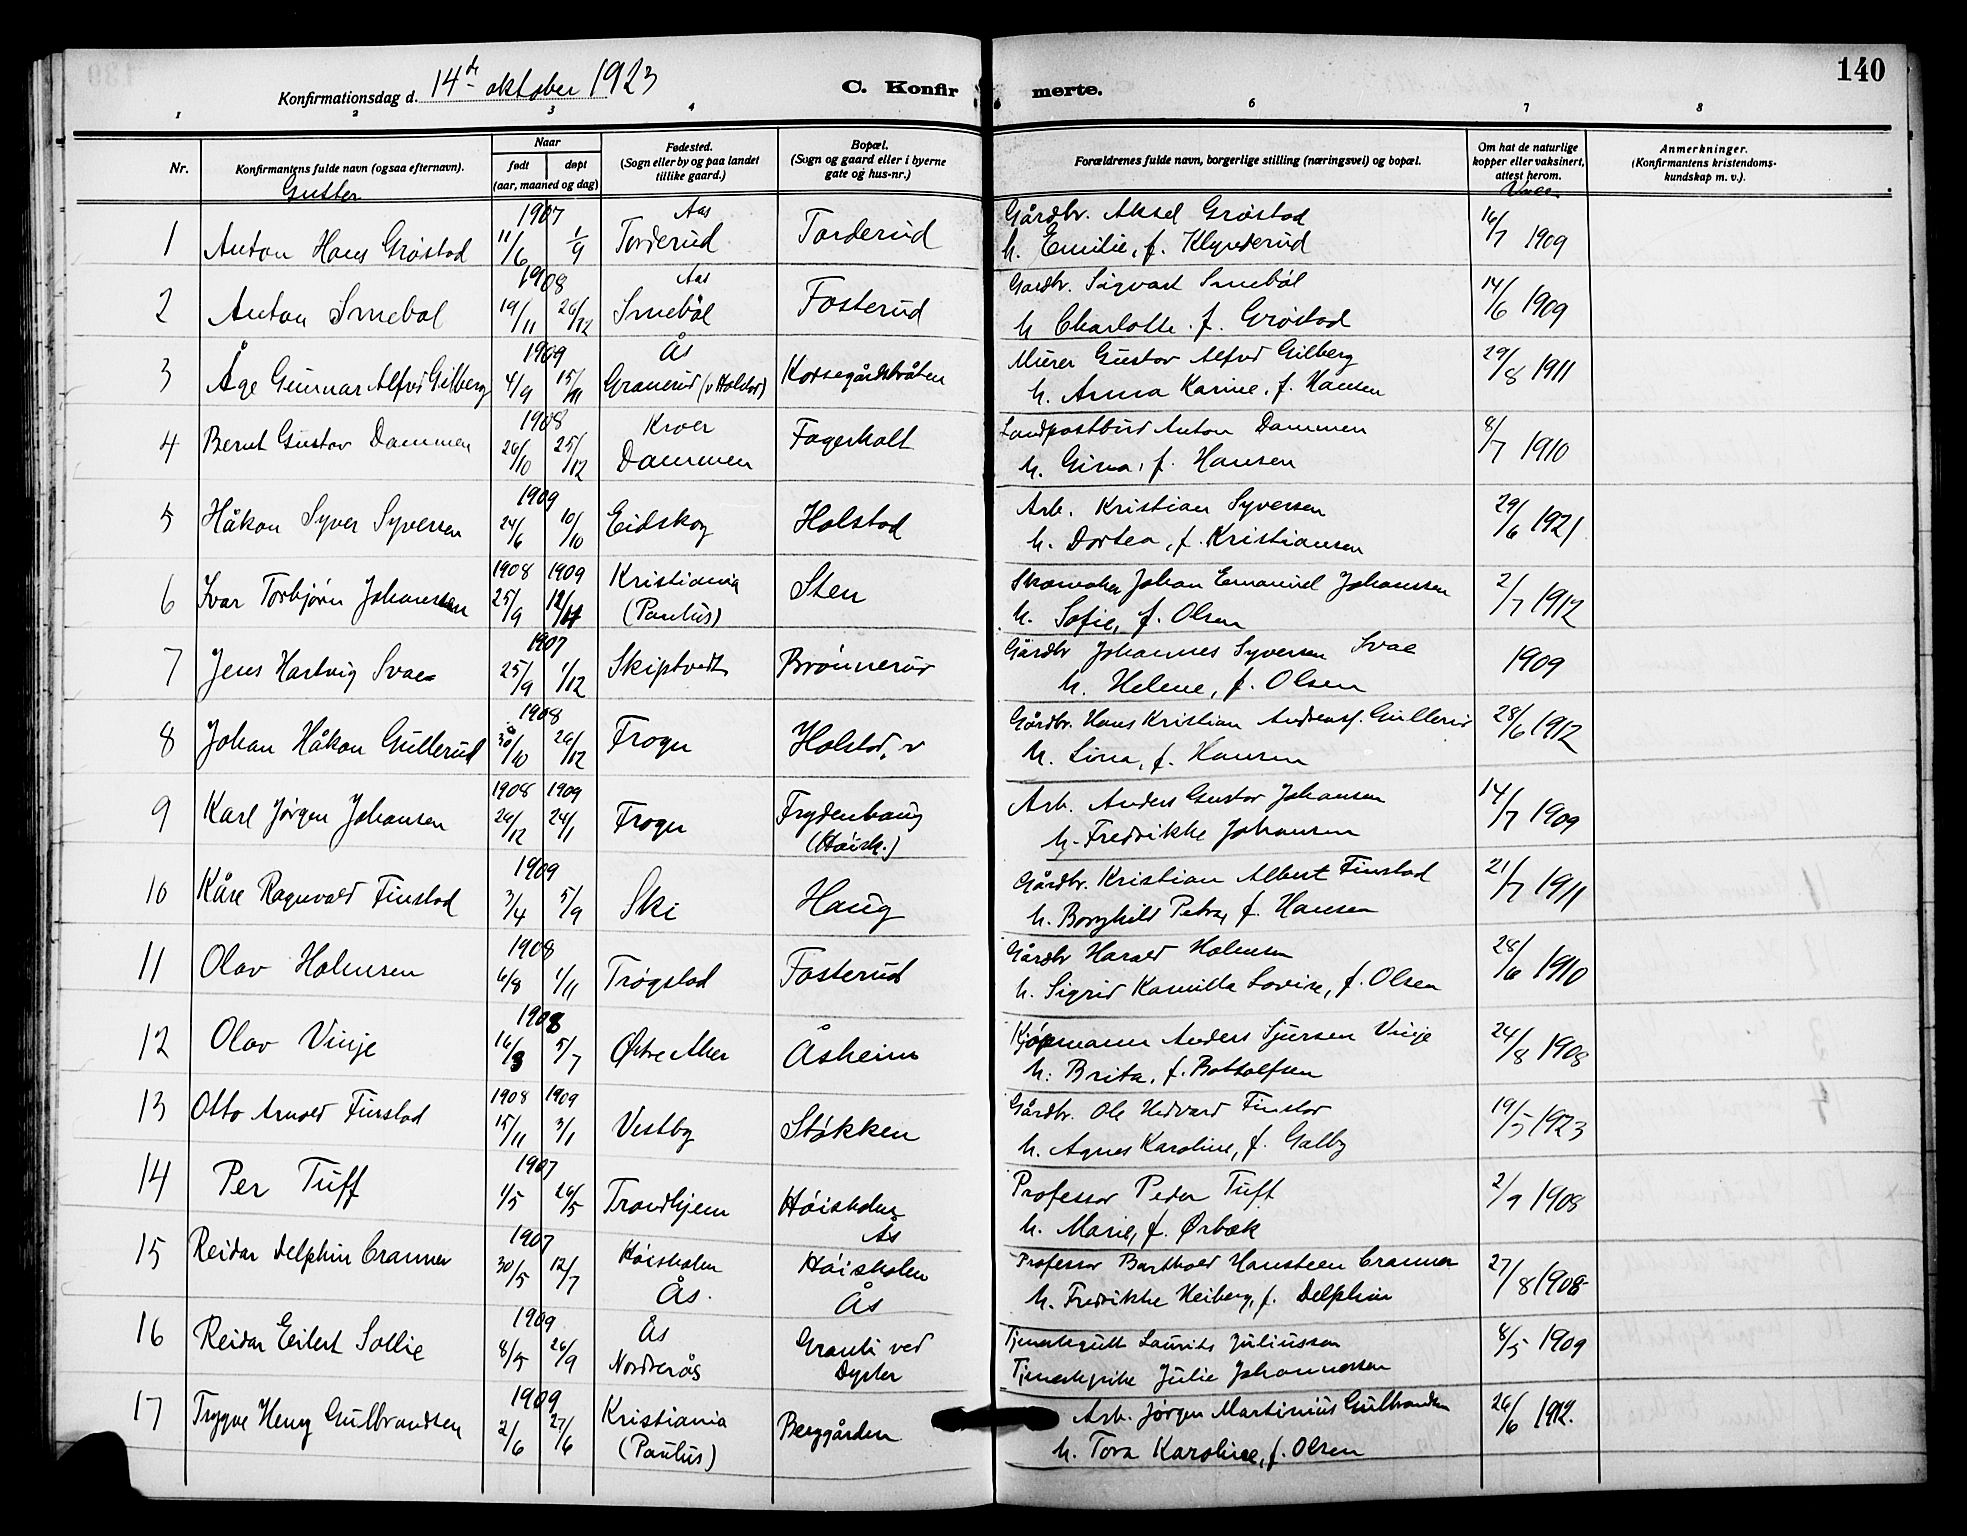 140
Konfirmationsdag d. 14de oktober 1923
C. Konfirmerte.
1 2 3 4 6 7 8
Nr.
Konfirmantens fulde navn (ogsaa efternavn).
Naar
født døpt
(aar, maaned og dag)
Fødested.
(Sogn eller by og paa landet
tillike gaard.)
Bopæl.
(Sogn og gaard eller i byerne
gate og hus-nr.)
Forældrenes fulde navn, borgerlige stilling (næringsvei) og bopæl.
Om hat de naturlige
kopper eller vaksinert,
attest herom.
Anmerkninger.
(Konfirmantens kristendoms-
kundskap m. v.).
Gutter
Vacc.
1907 Aas Gårdbr. Aksel Grøstad
1 Anton Hans Grøstad 11/6 1/9 Torderud Torderud h. Emilie, f. Klynderud 16/7 1909
1908 Aas Gårdbr. Sigvart Smebøl
2 Anton Smebøl 19/11 26/12 Smebøl Fosterud h. Charlotte f. Grøstad 14/6 1909
1909 Ås Murer Gustav Alfred Gilberg
3 Åge Gunnar Alfred Gilberg 4/9 15/11 Granerud (v Holstad) Korsegårdsbråten h. Anna Karine, f. Hansen 29/8 1911
1908 Kroer Landpostbud Anton Dammen
4 Bernt Gustav Dammen 26/10 25/12 Dammen Fagerholt h. Gina, f. Hansen 8/7 1910
1909 Arb. Kristian Syversen
5 Håkon Syver Syversen 24/6 10/10 Eidskog Holstad h. Dortea, f. Kristiansen 29/6 1921
1908 1909 Kristiania Skomaker Johan Emanuel Johanssen
6 Ivar Torbjørn Johanssen 25/9 12/4 (Paulus) Sten h. Sofie, f. Olsen 2/7 1912
1907 Gårdbr Johannes Syversen Svae
7 Jens Hartvig Svae 25/9 1/12 Skiptvedt Brønnerud h. Helene, f. Olsen 1909
1908 Gårdbr. Hans Kristian Andreass. Gullerud
8 Johan Håkon Gullerud 30/10 26/12 Frogn Holstad, v h. Lina, f. Hansen 28/6 1912
1908 1909 Arb. Anders Gustav Johansen
9 Karl Jørgen Johansen 26/12 24/1 Frogn Frydenhaug (Høisk.) h. Fredrikke Johansen 14/7 1909
1909 Gårdbr. Kristian Albert Finstad
10 Kåre Ragnvald Finstad 3/4 5/9 Ski Haug h. Borghild Petra, f. Hansen 21/7 1911
1908 Gårdbr Harald Holmsen
11 Olav Holmsen 6/8 1/11 Trøgstad Fosterud h. Sigrid Kamilla Lovise, f. Olsen 28/6 1910
1908 Kjøpmann Anders Sjursen Vinje
12 Olav Vinje 16/3 5/7 Østre Aker Åsheim h. Brita, f. Bottolfsen 24/8 1908
1908 1909 Gårdbr. Ole Hedvard Finstad
13 Otto Arnold Finstad 15/11 3/1 Vestby Støkken h. Agnes Karoline, f. Galby 19/5 1923
1907 Professor Peder Tuff
14 Per Tuff 1/5 26/5 Trondhjem Høiskolen Ås h. Marie, f. Ørbæk 2/9 1908
1907 Høiskolen Høiskolen Professor Barthold Hansteen Cranner
15 Reidar Delphin Cranner 30/5 12/7 Ås. Ås h. Fredrikke Heiberg, f. Delphin 27/8 1908
1909 Ås Granli ved Tjenestegutt Laurits Juliussen
16 Reidar Eilert Sollie 8/5 26/9 Norderås Dyster Tjenestepike Julie Johannessen 8/5 1909
1909 Kristiania Arb. Jørgen Martinius Gulbrandsen
17 Trygve Henry Gulbrandsen 2/6 27/6 (Paulus) Berggården h. Tora Karoline, f. Olsen 26/6 1912.